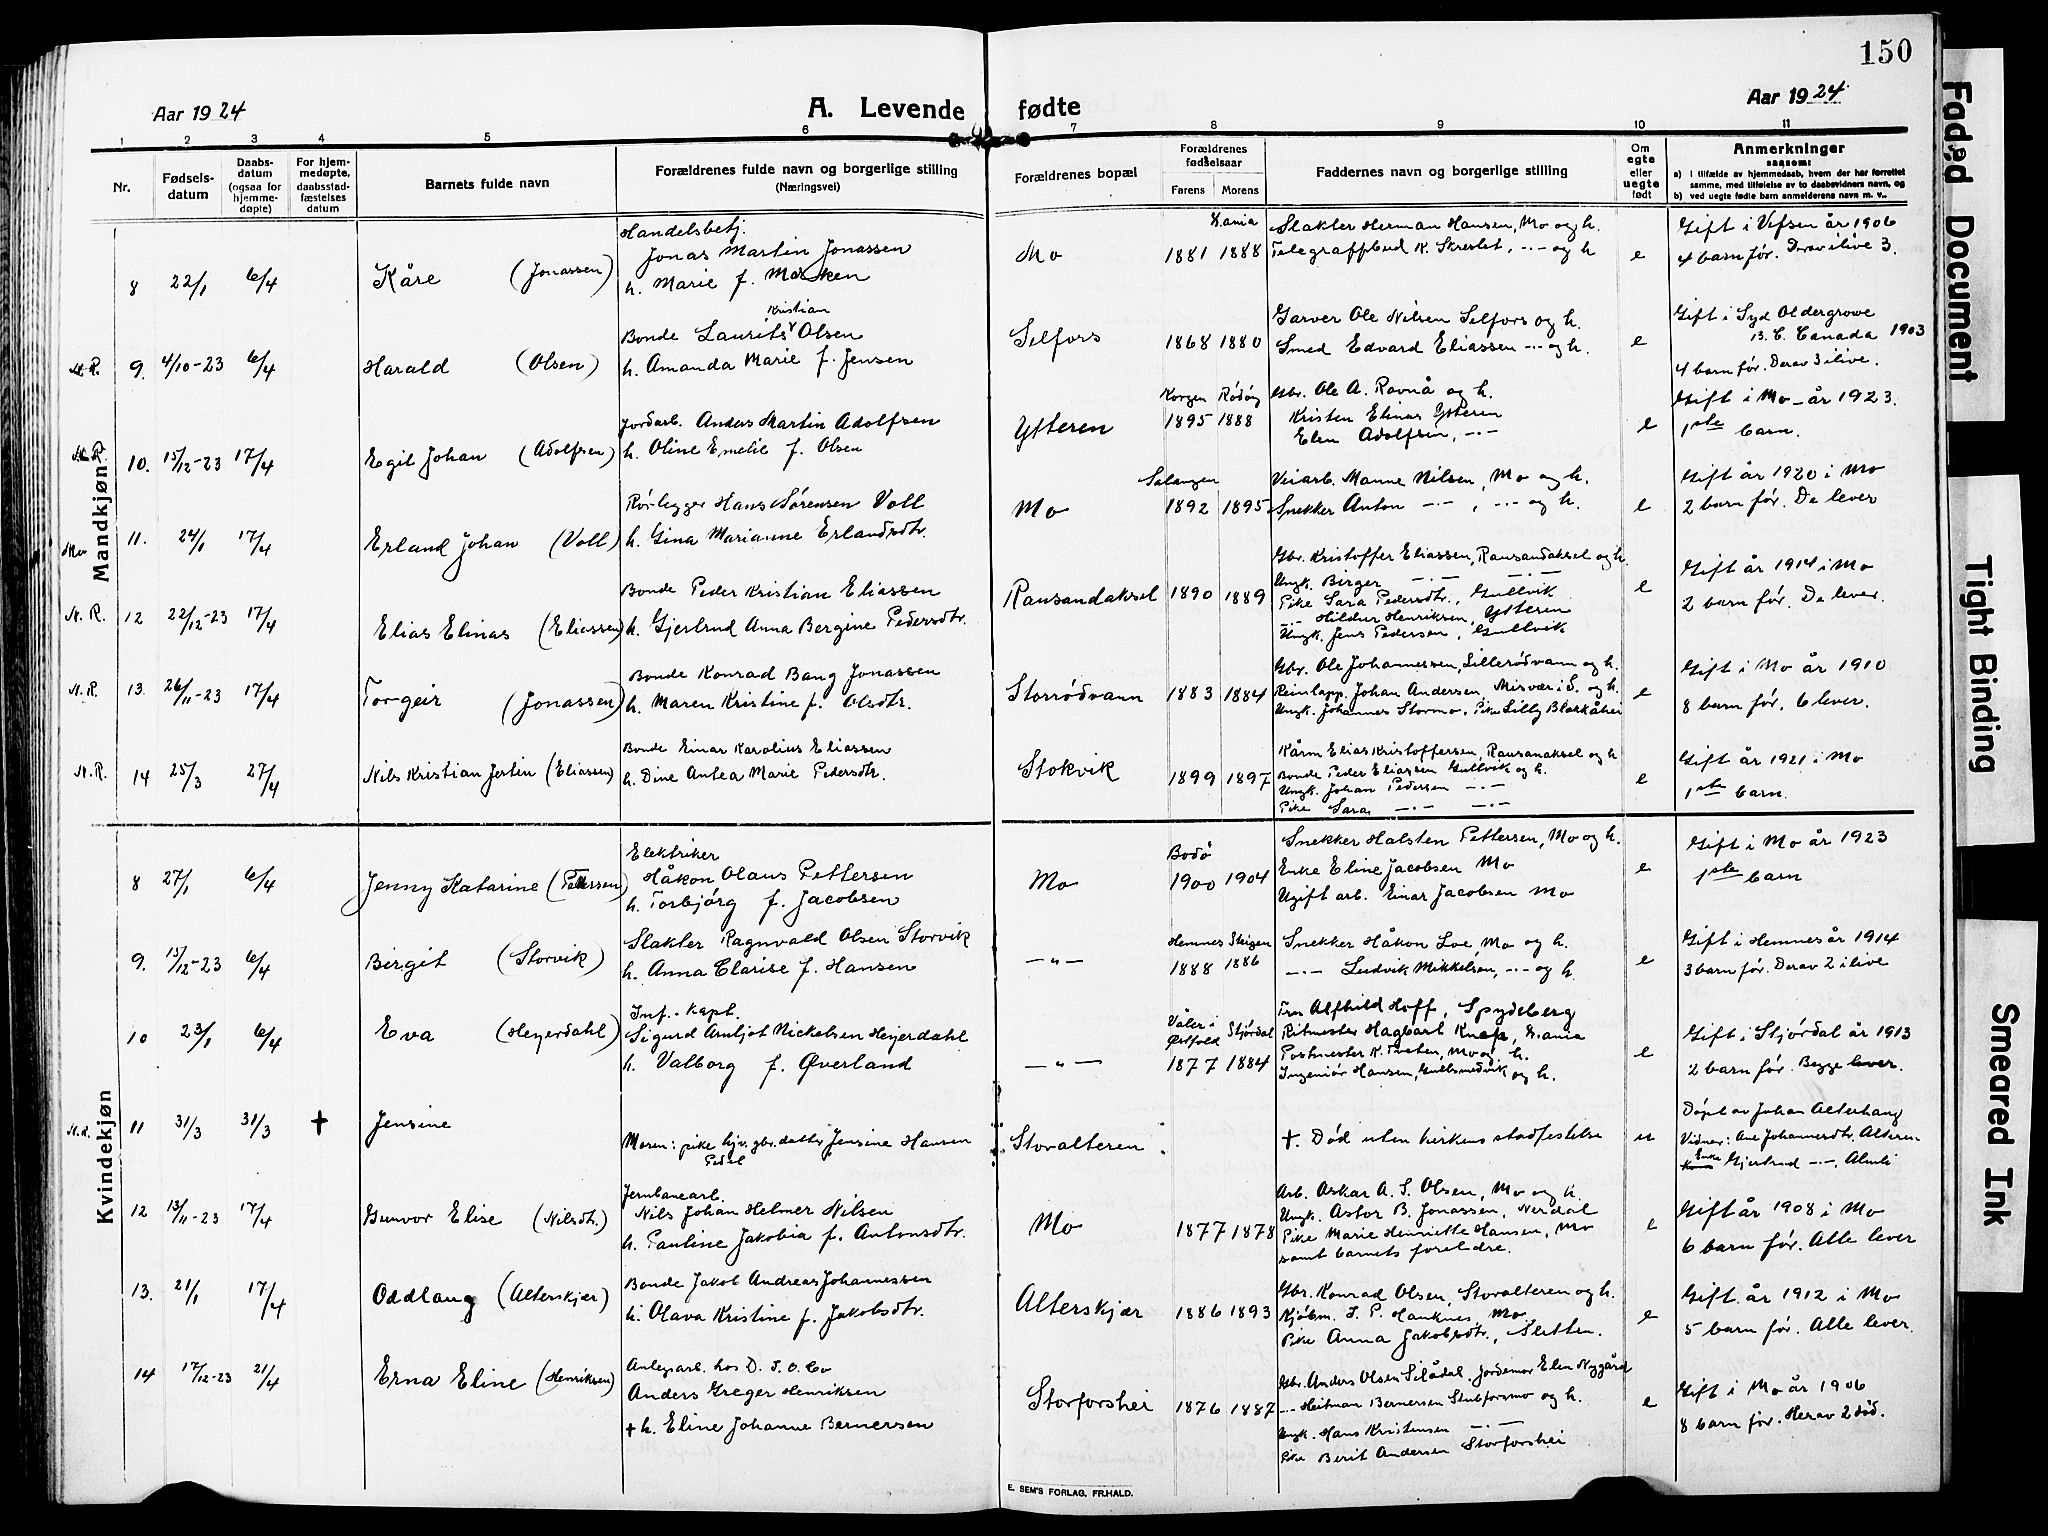 150
Aar 1924
A. Levende fødte
Aar 1924
1 2 3 4 5 6 7 8 9 10 11
Nr.
Fødselsdatum
Daabsdatum (ogsaa for hjemmedøpte)
For hjemmedøpte, daabsstadfæstelses datum
Barnets fulde navn
Forældrenes fulde navn og borgerlige stilling
(Næringsvei)
Forældrenes bopæl
Forældrenes fødselsaar
Farens Morens
Faddernes navn og borgerlige stilling
Om egte eller uegte født
Anmerkninger
saasom:
a) i tilfælde av hjemmedaab, hvem der har forrettet samme, med tilføielse av to daabsvidners navn, og
b) ved uegte fødte barn anmelderens navn m. v..
Mandkjøn
8 22/1 6/4 Kåre (Jonassen)
Handelsbetj.
Jonas Martin Jonassen
h. Marie f. Marken
Mo
X.ania
1881 1888
Slakter Herman Hansen, Mo og h.
Telegrafbud K. Skreslet, -·- og h
e
Gift i Vefsen år 1906
4 barn før. Derav ilive 3.
N.R. 9. 4/10-23 6/4 Harald (Olsen)
Kristian
Bonde Laurits Olsen
h. Amanda Marie f. Jensen
Selfors
1868 1880
Garver Ole Nilsen Selfors og h.
Smed Edvard Eliassen -·- og h.
e
Gift i Syd Oldergrowe
B. C. Canada 1903
4 barn før. Derav 3 ilive.
N.R. 10. 15/12-23 17/4 Egil Johan (Adolfsen)
Jordarb. Anders Martin Adolfsen
h. Oline Emelie f. Olsen
Ytteren
Korgen Rødøy
1895 1888
Gbr. Ole A. Ravnå og h.
Kristen Elinas Ytteren
Elen Adolfsen, -·-
e
Gift i Mo - år 1923.
1ste barn.
Mo 11. 24/1 17/4 Erland Johan (Voll)
Rørlegger Hans Sørensen Voll
h. Gina Marianne Erlandsdtr.
Mo
Salangen
1892 1895
Veiarb. Manne Nilsen, Mo og h.
Snekker Anton -·-, -·- og h.
e
Gift år 1920 i Mo
2 barn før. De lever
N.R. 12 22/12-23 17/4 Elias Elinas (Eliassen)
Bonde Peder Kristian Eliassen
h. Gjertrud Anna Bergine Pedersdtr.
Ransandaksel
1890 1889
Gbr. Kristoffer Eliassen, Ransandaksel og h.
Ungk. Birger -·- -·-
Pike Sara Pedersdtr., Gullvik
-·- Hildur Henriksen, Ytteren
Ungk. Jens Pedersen, Gullvik
e
Gift år 1914 i Mo
2 barn før. De lever.
N.R. 13. 26/11-23 17/4 Torgeir (Jonassen)
Bonde Konrad Bang Jonassen
h. Maren Kristine f. Olsdtr.
Storrødvann
1883 1884
Gbr. Ole Johannessen, Lillerødvann og h.
Reinlapp. Johan Andersen, Misvær i S. og h.
Ungk. Johannes Stormo. Pike Lilly Blakkåhei
e
Gift i Mo år 1910
8 barn før. 6 lever.
N.R. 14 25/3 27/4 Nils Kristian Jostin (Eliassen)
Bonde Einar Karolius Eliassen
h. Dine Antea Marie Pedersdtr.
Stokvik
1899 1897
Kårm Elias Kristoffersen, Ransanaksel og h
Bonde Peder Eliassen Gullvik og h.
Ungk. Johan Pedersen -·-
Pike Sara -·- -·-
e
Gift år 1921 i Mo
1ste barn.
Kvindekjøn
8 27/1 6/4 Jenny Katarine (Pettersen)
Elektriker
Håkon Olaus Pettersen
h. Torbjørg f. Jacobsen
Mo
Bodø
1900 1904
Snekker Halsten Pettersen, Mo og h.
Enke Eline Jacobsen Mo
Ugift arb. Einar Jacobsen Mo
e
Gift i Mo år 1923
1ste barn
9. 15/12-23 6/4 Birgit (Storvik)
Slakter Ragnvald Olsen Storvik
h. Anna Clarise f. Hansen
-"-
Hemnes Steigen
1888 1886
Snekker Håkon Loe Mo og h.
-·- Ludvik Mikkelsen, -·- og h.
e
Gift i Hemnes år 1914
3 barn før. Derav 2 ilive
10 23/1 6/4 Eva (Heyerdahl)
Inf.-kapt.
Sigurd Arnljot Nickelsen Heyerdahl
h. Valborg f. Øverland
-"-
Våler i Østfold Stjørdal
1877 1884
Fru Alfhild Hoff, Spydeberg
Ritmester Hagbart Knap, X.ania
Postmester K. Tveten, Mo og h.
Ingeniør Hansen, Gullsmedvik og h.
e
Gift i Stjørdal år 1913
2 barn før. Begge lever.
N.R. 11 31/3 31/3 † Jensine
Moren: pike hjv. gbr.datter Jensine Hansen
Storalteren
†. Død uten kirkens stadfestelse
u
Døpt av Johan Alterhaug
Vidner: Ane Johannesdtr. Alteren
Enke Gjertrud -·-, Almli
12 13/11-23 17/4 Gunvor Elise (Nilsdtr.)
Jernbanearb.
Nils Johan Helmer Nilsen
h. Pauline Jakobia f. Antonsdtr.
Mo
1877 1878
Arb. Oskar A. S. Olsen, Mo og h.
Ungk. Astor B. Jonassen, Nerdal
Pike Marie Henriette Hansen, Mo
samt barnets foreldre.
e
Gift år 1908 i Mo
6 barn før. Alle lever
13. 21/1 17/4 Oddlaug (Alterskjær)
Bonde Jakob Andreas Johannessen
h. Olava Kristine f. Jakobsdtr.
Alterskjær
1886 1893
Gbr. Konrad Olsen, Storalteren og h.
Kjøbm. I. P. Hauknes, Mo
Pike Anna Jakobsdtr., Sletten.
e
Gift år 1912 i Mo
5 barn før. Alle lever.
14 17/12-23 21/4 Erna Eline (Henriksen)
Anlegsarb. hos D. I. O. Co
Anders Greger Henriksen
† h. Eline Johanne Bernersen
Storforshei
1876 1887
Gbr. Anders Olsen Silådal. Jordemor Elen Nygård
-·- Heitman Bernersen Stubforsmo og h.
Ungk. Hans Kristensen -·-
Pike Berit Andersen Storforshei
e
Gift i Mo år 1906
8 barn før. Herav 2 død.
E. SEM'S FORLAG, FR.HALD.
Faded Document
Tight Binding
Smeared Ink